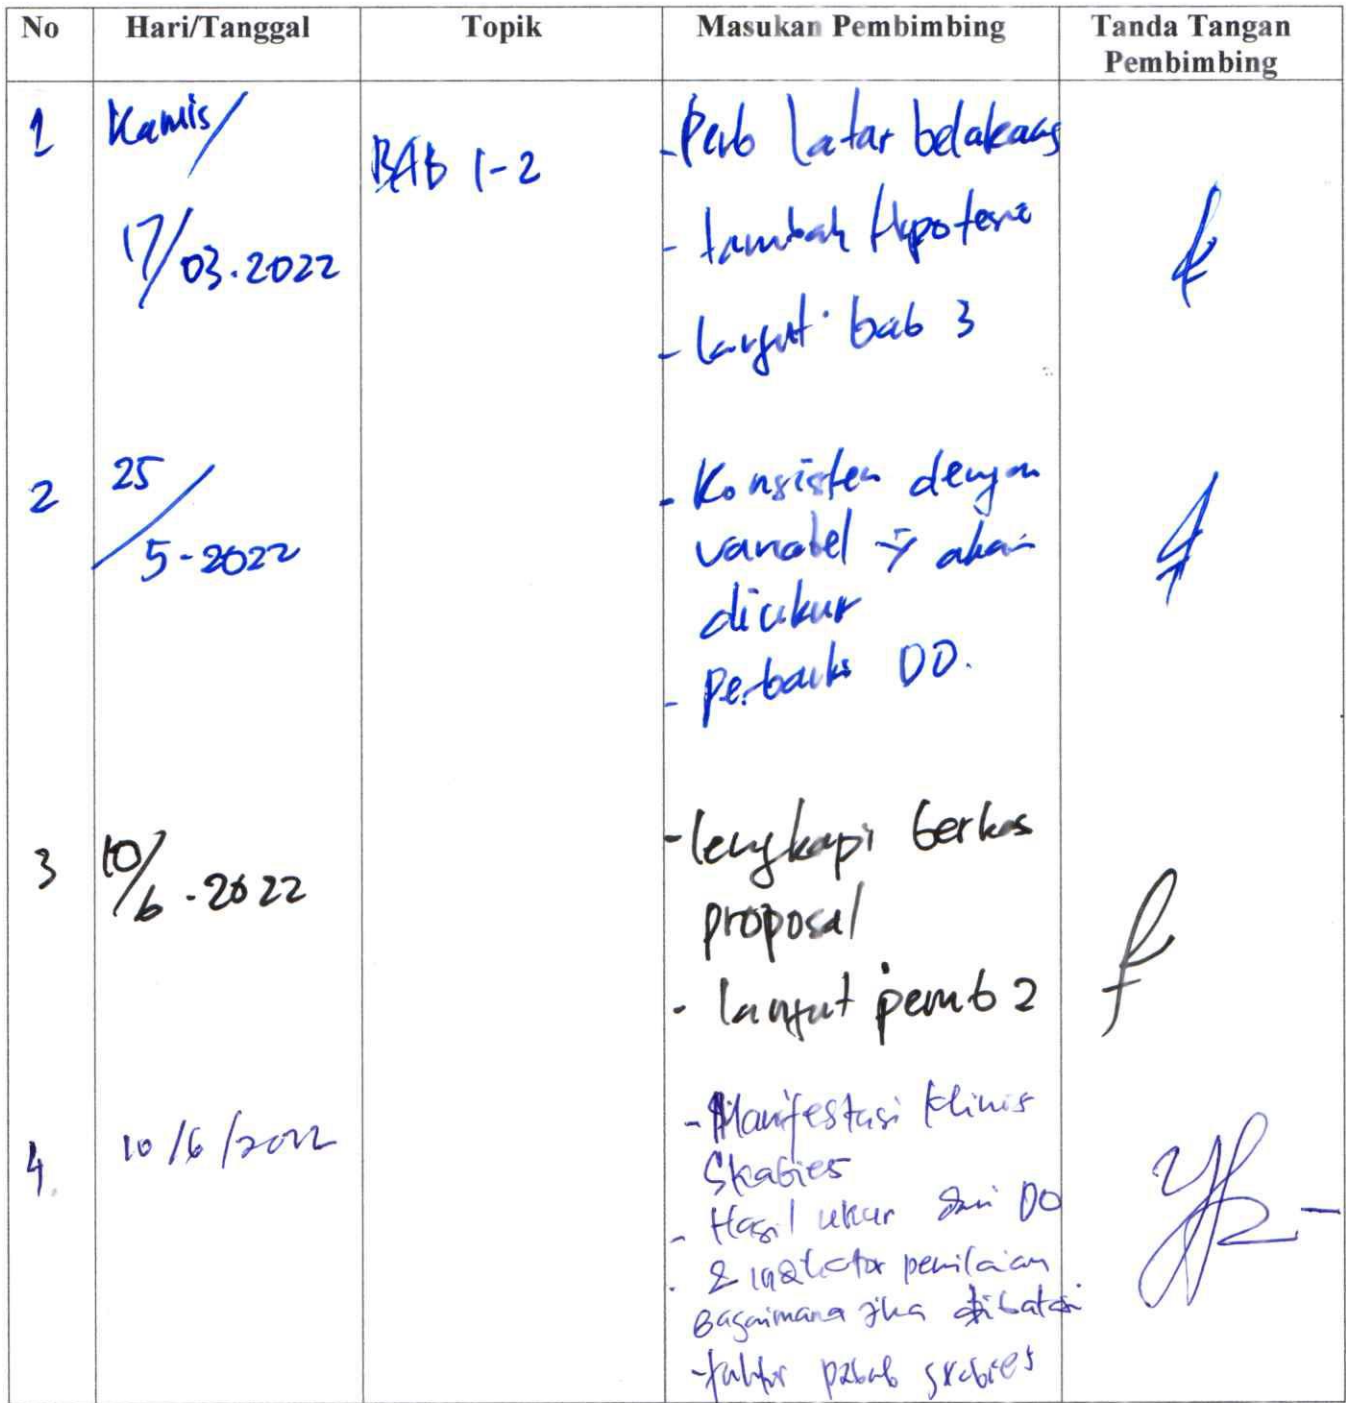 No Hari/Tanggal Topik Masukan Pembimbing Tanda Tangan Pembimbing
1 Kamis/ 17/03.2022
BAB 1-2
- Perb latar belakang
- tambah Hipotesis
- lanjut bab 3
2 25/5-2022
- Konsisten dengan
variabel yg akan
diukur
- Perbaiki DO.
3 10/6-2022
- lengkapi berkas
proposal
- lanjut pemb 2
4. 10/6/2022
- Manifestasi klinis
Skabies
- Hasil ukur dari DO
& indikator penilaian
Bagaimana jika dibatasi
- faktor skabies